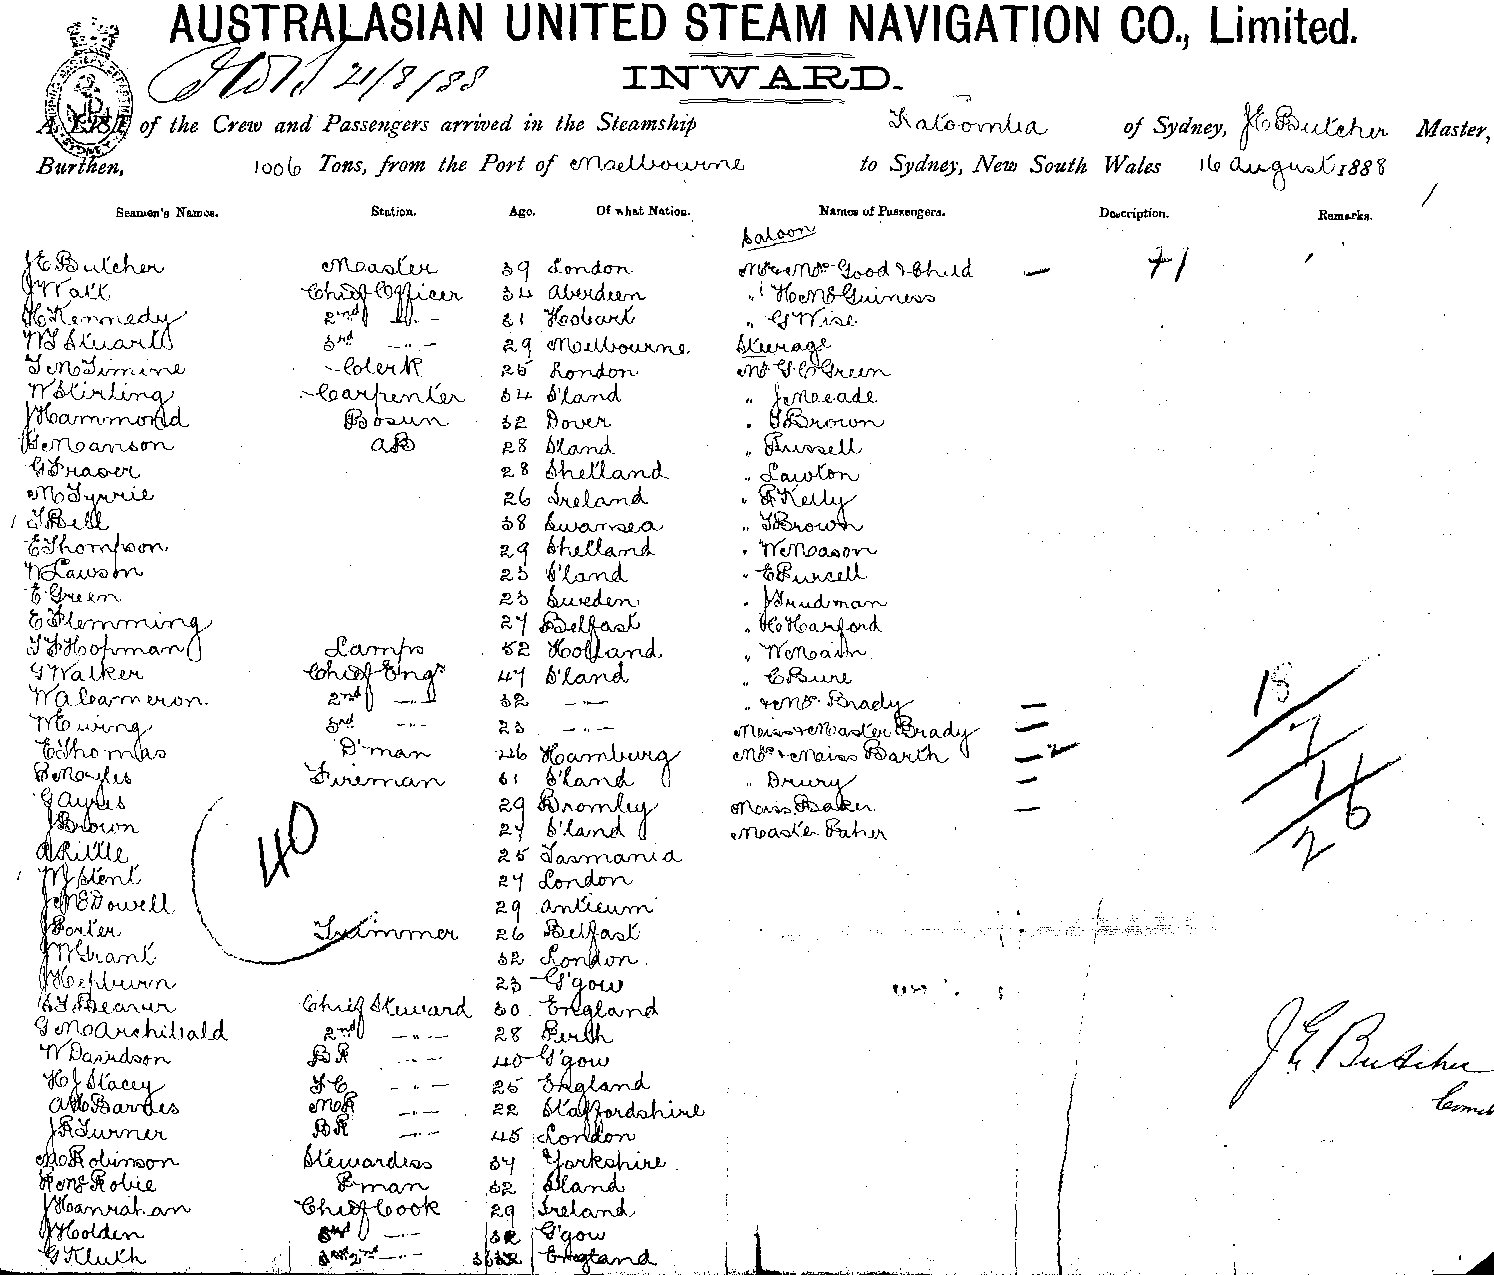 AUSTRALASIAN UNITED STEAM NAVIGATION CO., Limited.
21/8/88
INWARD.
A List of the Crew and Passengers arrived in the Steamship Katoomba of Sydney, J E Butcher Master,
Burthen, 1006 Tons, from the Port of Melbourne to Sydney, New South Wales 16 August 1888
Seamen's Names. Station. Age. Of what Nation. Names of Passengers. Description. Remarks.
Saloon
J E Butcher Master 39 London Mr & Mrs Good & Child — 71
J Watt Chief Officer 34 Aberdeen " H McGuiness
H Kennedy 2nd —"— 31 Hobart " G Wise
W S Stuart 3rd —"— 29 Melbourne Steerage
25 London Mr G C Green
W Stirling Carpenter 34 S'land " J Meade
J Hammond Bosun 32 Dover " T Brown
Manson AB 28 S'land " Russell
G Fraser 28 Shetland " Lawton
M Tyrrie 26 Ireland " P Kelly
T Bell 38 Swansea " T Brown
E Thompson 29 Shetland " W Mason
W Lawson 23 S'land " E Purcell
E Green 23 Sweden " J Trudman
E Flemming 27 Belfast " H Harford
Hofman Lamps 52 Holland " W Main
G Walker Chief Engr 47 S'land " C Bure
W A Cameron 2nd —"— 32 —"— " & Mrs Brady —
W Ewing 3rd —"— 23 —"— Miss & Master Brady —
E Thomas D'man 46 Hamburg Mrs & Miss Barth — 2
Moyles Fireman 31 S'land " Drury —
G Ayres 29 Bromley Miss Baker —
J Brown 27 S'land Master Faher
A Little 25 Tasmania
W J Stent 27 London
J McDowell 29 Antieum
J Porter Trimmer 26 Belfast
J W Grant 32 London
J Hepburn 23 G'gow
Chief Steward 30 England
G M Archibald 2nd —"— 28 Perth
W Davidson BR 40 G'gow
H J Stacey FC —"— 25 England
A H Barnes MR —"— 22 Staffordshire
J R Turner BR —"— 45 London
M Robinson Stewardess 37 Yorkshire
Robie P'man 32 S'land
J Hanrahan Chief Cook 29 Ireland
J Holden 3rd —"— G'gow
G Kluth 2nd —"— England
40
18
7
1 6
2
J E Butcher